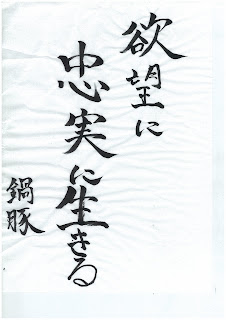 欲望に
忠実に生きる
鍋豚